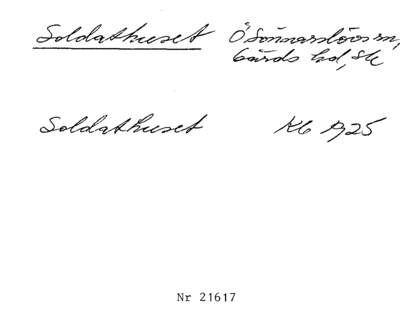 Soldathuset Ö Sönnarslövs sn,
Gärds hd, Sk
Soldathuset Kb 1925
Nr 21617